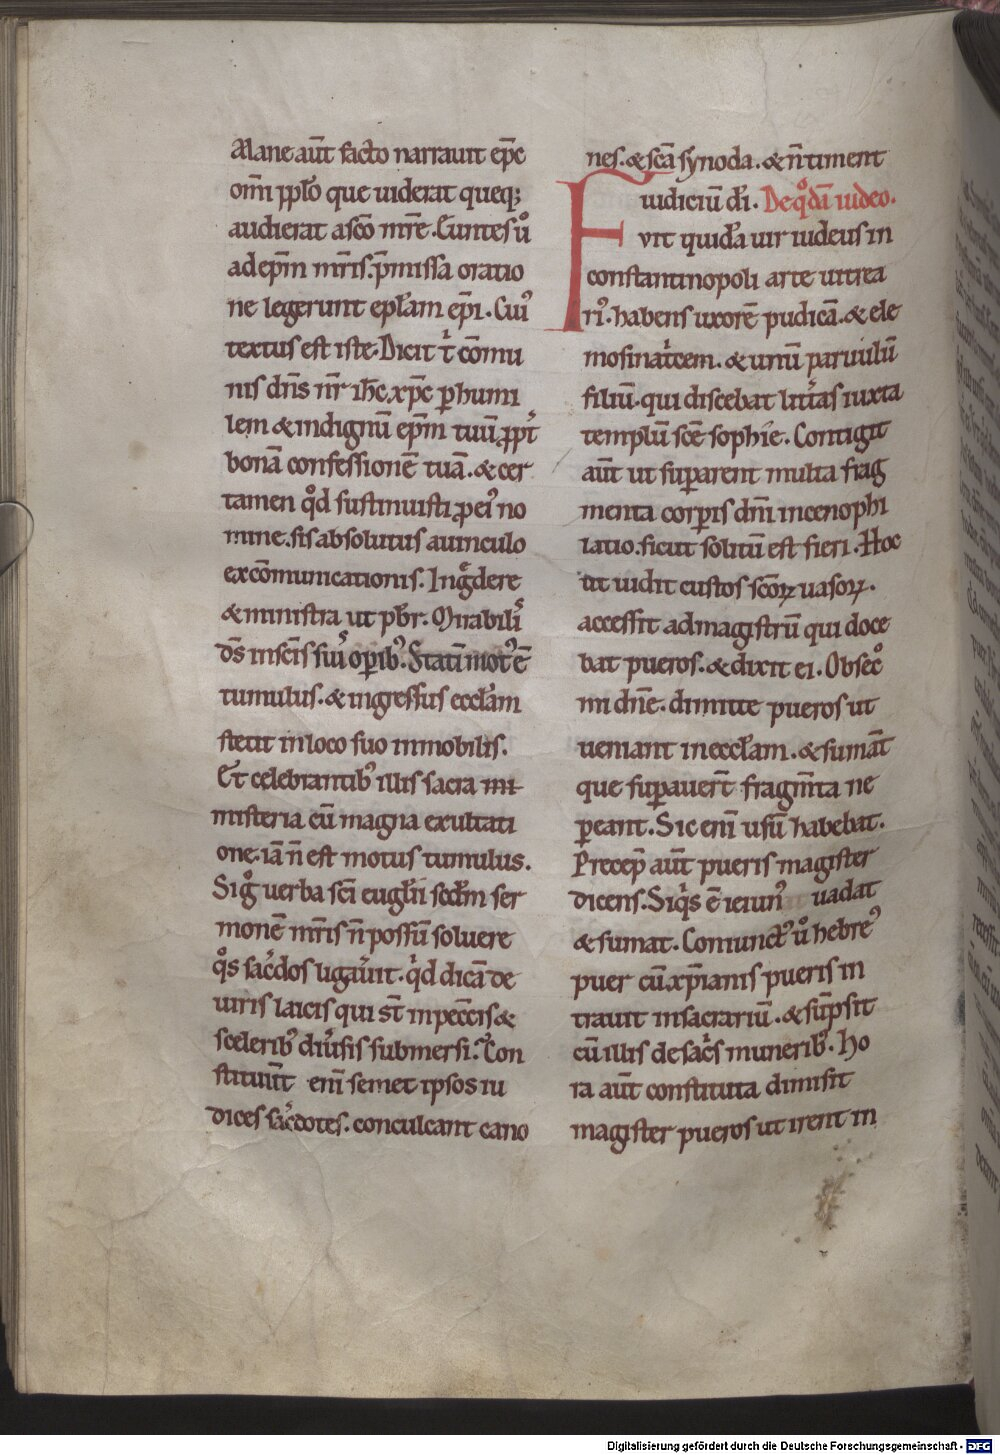 Mane aut̄ facto narrauit ep̄c
om̄i pp̄lo que uiderat queq;
audierat a sc̄o mr̄e. Euntes ů
ad ep̄m mr̄is. p̄missa oratio
ne legerunt epl̄am ep̄i. Cui᾽
textus est iste. Dicit t̾ cōmu
nis dn̄s nr̄ ih̄c xp̄c p̱ humi
lem & indignū ep̄m tuū ꝓpt̾
bonā confessionē tuā. & cer
tamen qͦd sustinuisti ꝓ ei᾽ no
mine. sis absolutus a uinculo
excōmunicationis. Ingͤdere
& ministra ut pb̄r. Mirabiliˢ
ds̄ in sc̄is suiˢ opib᾽. Statī mot᾽ ē
tumulus. & ingressus eccl̄am
stetit in loco suo inmobilis.
Et celebrantib᾽ illis sacra mi
misteria cū magna exultati
one. iā n̄ est motus tumulus.
Sigͦ uerba sc̄i eugl̄ii scd̄m ser
monē mr̄is n̄ possū soluere
qͦs sac̾dos ligau̾it. qͥd dicā de
uiris laicis qui st̄ in pecc̄is &
scelerib᾽ diu̾sis submersi. Con
stituūt enī semet ipsos iu
dices sac̾dotes. conculcant cano
nes. & sc̄a synoda. & n̄ timent
iudiciū dī. De qͦdā iudeo.
Fvit quidā uir iudeus in
constantinopoli arte uitrea
ri᾽. habens uxorē pudicā. & ele
mosinat̾cem. & unū paruulū
filiū. qui discebat litt̾as iuxta
templū sc̄e sophie. Contigit
aut̄ ut sup̱arent multa frag
menta corp̱is dn̄i in cenophi
iatio. sicut solitū est fieri. Hoc
ut uidit custos sc̄oꝝ uasoꝝ.
accessit ad magistrū qui doce
bat pueros. & dixit ei. Obsecͦ
mi dn̄e. dimitte pueros ut
ueniant in eccl̄am. & sumāt
que sup̱auer̄t fragm̄ta ne
p̱eant. Sic enī usū habebat.
Precep̄ aut̄ pueris magister
dicens. Siqͥs ē ieiun᾽ uadat
& sumat. Coniunct᾽ ů hebre᾽
puer cū xp̄ianis pueris in
trauit in sacrariū. & sūpsit
cū illis de sac̾s munerib᾽. Ho
ra aut̄ constituta dimisit
magister pueros ut irent in
Digitalisierung gefördert durch die Deutsche Forschungsgemeinschaft - DFG